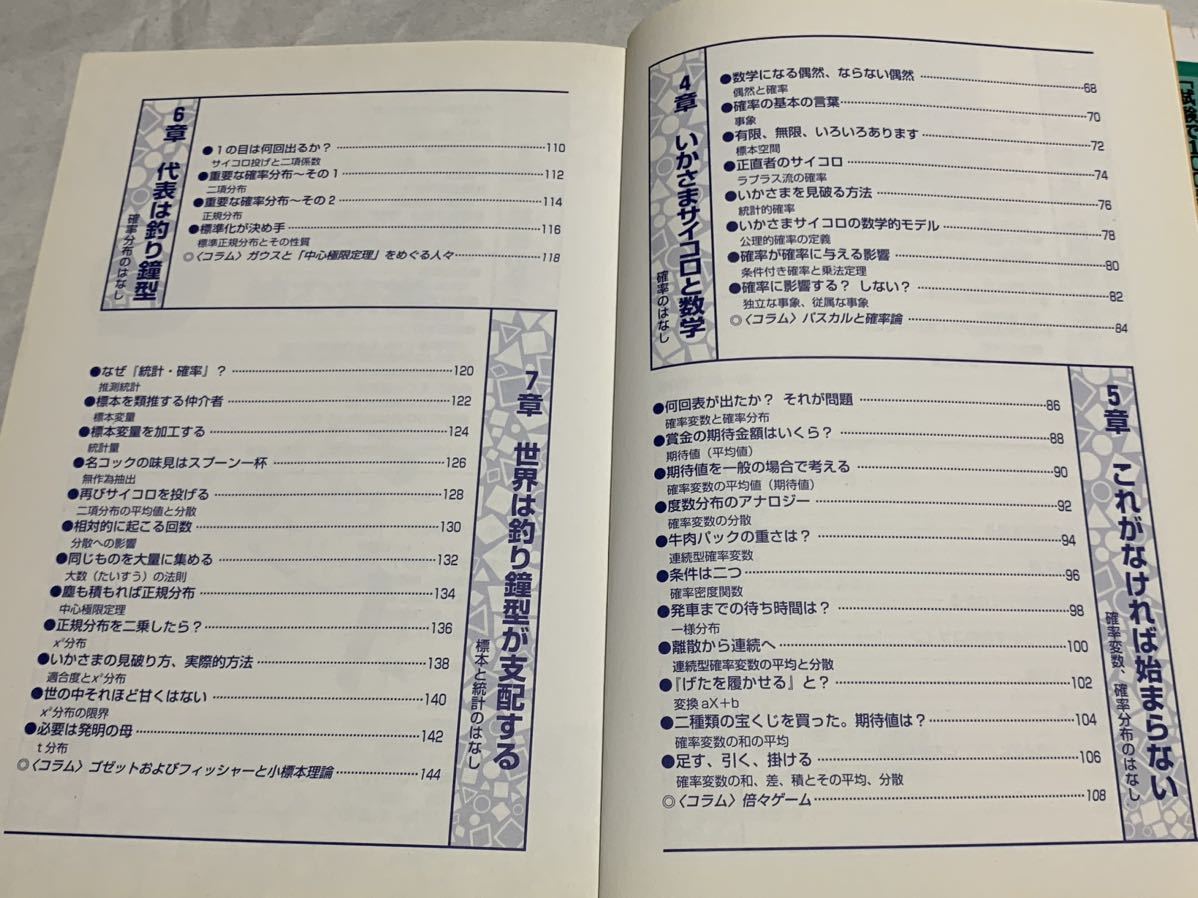 4章 いかさまサイコロと数学
確率のはなし
●数学になる偶然、ならない偶然 68
偶然と確率
●確率の基本の言葉 70
事象
●有限、無限、いろいろあります 72
標本空間
●正直者のサイコロ 74
ラプラス流の確率
●いかさまを見破る方法 76
統計的確率
●いかさまサイコロの数学的モデル 78
公理的確率の定義
●確率が確率に与える影響 80
条件付き確率と乗法定理
●確率に影響する? しない? 82
独立な事象、従属な事象
◎〈コラム〉パスカルと確率論 84
5章 これがなければ始まらない
確率変数、確率分布のはなし
●何回表が出たか? それが問題 86
確率変数と確率分布
●賞金の期待金額はいくら? 88
期待値（平均値）
●期待値を一般の場合で考える 90
確率変数の平均値（期待値）
●度数分布のアナロジー 92
確率変数の分散
●牛肉パックの重さは? 94
連続型確率変数
●条件は二つ 96
確率密度関数
●発車までの待ち時間は? 98
一様分布
●離散から連続へ 100
連続型確率変数の平均と分散
●『げたを履かせる』と? 102
変換 aX+b
●二種類の宝くじを買った。期待値は? 104
確率変数の和の平均
●足す、引く、掛ける 106
確率変数の和、差、積とその平均、分散
◎〈コラム〉倍々ゲーム 108
6章 代表は釣り鐘型
確率分布のはなし
●1の目は何回出るか? 110
サイコロ投げと二項係数
●重要な確率分布〜その1 112
二項分布
●重要な確率分布〜その2 114
正規分布
●標準化が決め手 116
標準正規分布とその性質
◎〈コラム〉ガウスと「中心極限定理」をめぐる人々 118
7章 世界は釣り鐘型が支配する
標本と統計のはなし
●なぜ『統計・確率』? 120
推測統計
●標本を類推する仲介者 122
標本変量
●標本変量を加工する 124
統計量
●名コックの味見はスプーン一杯 126
無作為抽出
●再びサイコロを投げる 128
二項分布の平均値と分散
●相対的に起こる回数 130
分散への影響
●同じものを大量に集める 132
大数（たいすう）の法則
●塵も積もれば正規分布 134
中心極限定理
●正規分布を二乗したら? 136
x²分布
●いかさまの見破り方、実際的方法 138
適合度とx²分布
●世の中それほど甘くはない 140
x²分布の限界
●必要は発明の母 142
t分布
◎〈コラム〉ゴゼットおよびフィッシャーと小標本理論 144